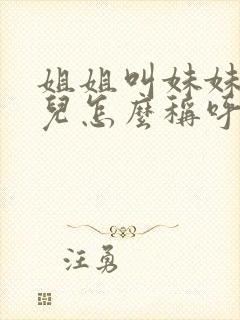 姐姐叫妹妹
兒怎麼稱呼
汪勇